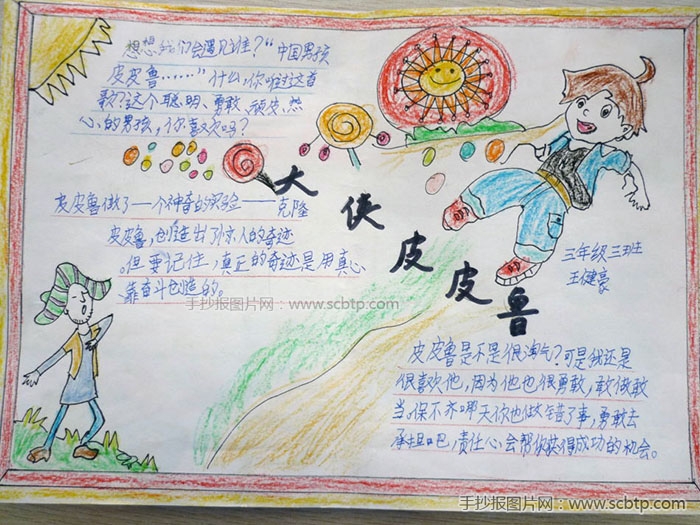 想想我们会遇见谁？“中国男孩
皮皮鲁……”什么，你唱过这首
歌？这个聪明、勇敢、顽皮、热
心的男孩，你喜欢吗？
大侠皮皮鲁
皮皮鲁做了一个神奇的实验——克隆
皮皮鲁，创造出了惊人的奇迹
。但要记住，真正的奇迹是用真心
靠奋斗创造的。
三年级三班
王健豪
手抄报图片网：www.scbtp.com
皮皮鲁是不是很淘气？可是我还是
很喜欢他，因为他也很勇敢，敢做敢
当。保不齐哪天你也做错了事，勇敢去
承担吧，责任心会帮你获得成功的机会。
手抄报图片网：www.scbtp.com